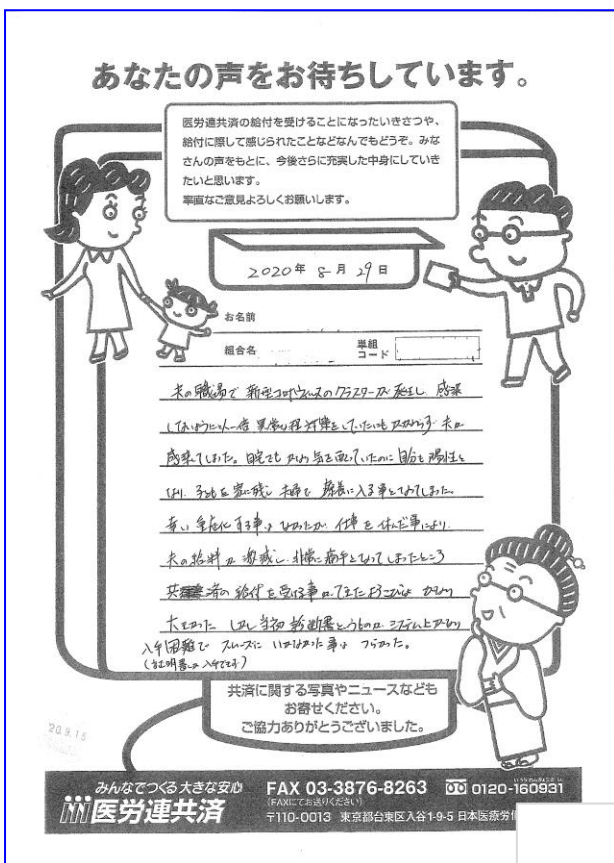 あなたの声をお待ちしています。
医労連共済の給付を受けることになったいきさつや、
給付に際して感じられたことなどなんでもどうぞ。みな
さんの声をもとに、今後さらに充実した中身にしていき
たいと思います。
率直なご意見よろしくお願いします。
2020年 8月 29日
お名前
組合名
単組
コード
夫の職場で 新型コロナウィルスのクラスターが発生し、感染
しないように 異常な程対策をしていたにもかかわらず 夫が
感染してしまった。自宅でもかなり気を面っていたのに自分も陽性と
なり、子どもを家に残し 夫婦で 療養に入る事となってしまった。
幸い重症化する事はなかったが 仕事を休んだ事により
夫の給料が激減し、非常に痛手となってしまったところ
共済の給付を受ける事ができたよろこびは かなり
大きかった しかし当初 診断書というものが システム上かなり
入手困難で スムーズに いかなかった事は つらかった。
(証明書は入手できず)
共済に関する写真やニュースなども
お寄せください。
ご協力ありがとうございました。
20.9.15
みんなでつくる大きな安心
医労連共済
FAX 03-3876-8263 0120-160931
(FAXにてお送りください)
〒110-0013 東京都台東区入谷1-9-5 日本医療労